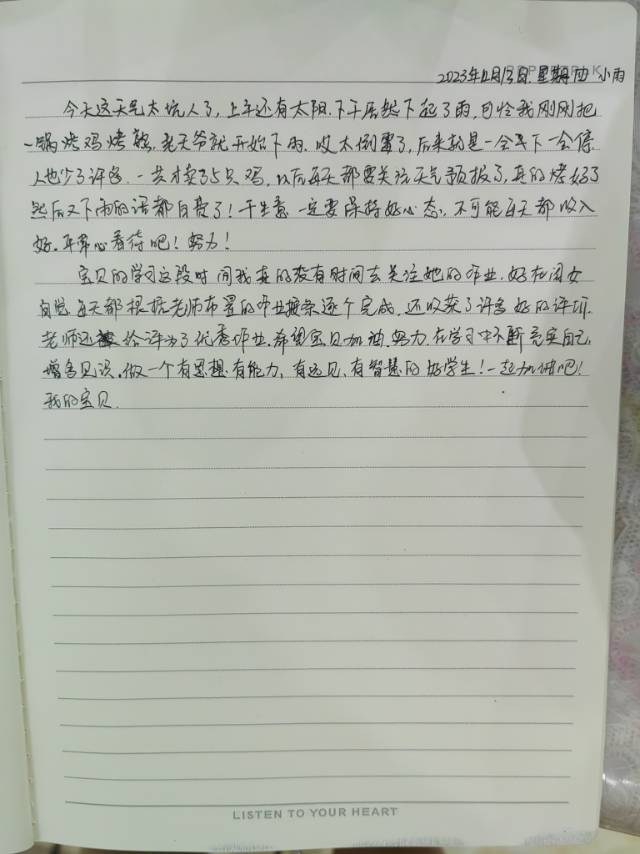 2023年4月13日 星期四 小雨
今天这天气太坑人了，上午还有太阳.下午居然下起了雨，可怜我刚刚把
一锅烤鸡烤熟.老天爷就开始下雨.哎太倒霉了，后来就是一会下一会停
人也少了许多.一共才卖了5只鸡，以后每天都要关注天气预报了，真的烤好了
然后又下雨的话都白费了！干生意一定要保持好心态，不可能每天都收入
好.平常心看待吧！努力！
宝贝的学习这段时间我真的没有时间去关注她的作业.好在闺女
自觉.每天都根据老师布置的作业逐个完成.还收获了许多好的评价.
老师还给评为了优秀作业.希望宝贝加油.努力.在学习中不断充实自己，
增多见识.做一个有思想有能力，有远见，有智慧的好学生！一起加油吧！
我的宝贝.
LISTEN TO YOUR HEART